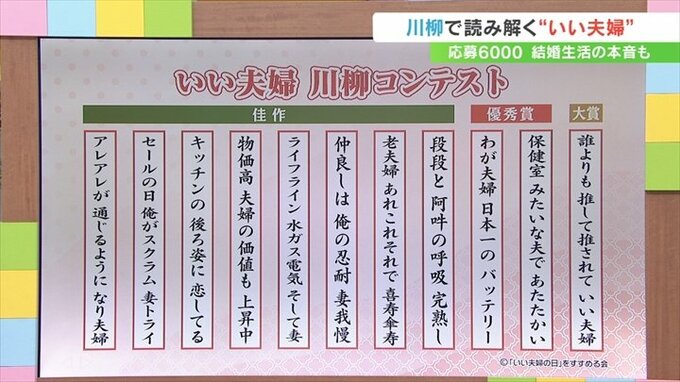 川柳で読み解く“いい夫婦”
応募6000 結婚生活の本音も
いい夫婦 川柳コンテスト
大賞
誰よりも 推して推されて いい夫婦
優秀賞
保健室 みたいな夫で あたたかい
わが夫婦 日本一の バッテリー
佳作
段段と 阿吽の呼吸 完熟し
老夫婦 あれこれそれで 喜寿傘寿
仲良しは 俺の忍耐 妻我慢
ライフライン 水ガス電気 そして妻
物価高 夫婦の価値も 上昇中
キッチンの 後ろ姿に 恋してる
セールの日 俺がスクラム 妻トライ
アレアレが 通じるように なり夫婦
©「いい夫婦の日」をすすめる会